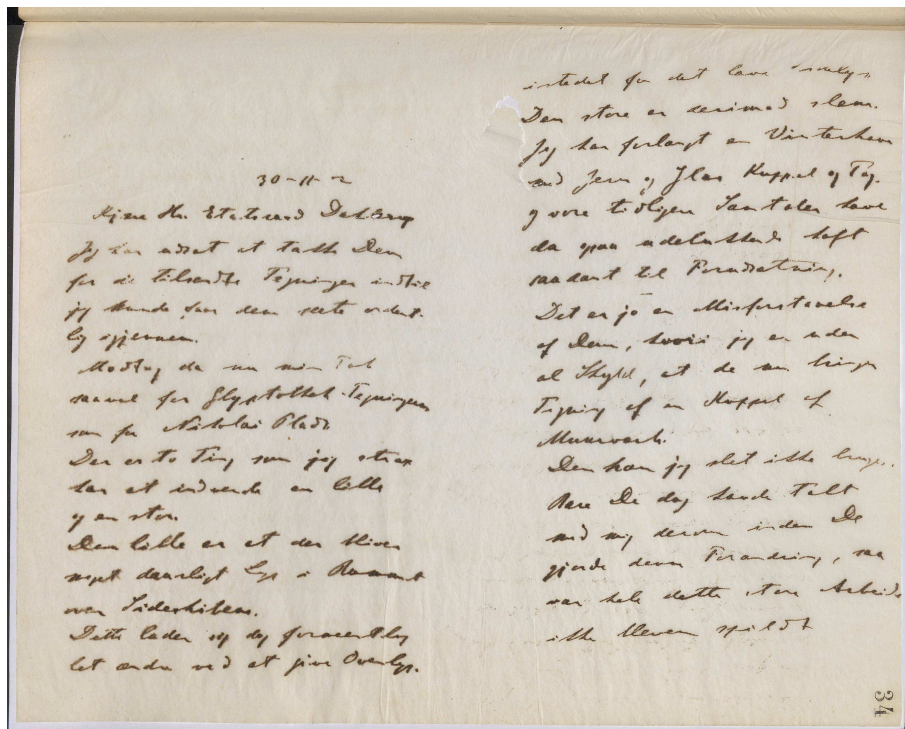 30-11-2
Kjære Hr. Etatsraad Dahlerup
Jeg har udsat at takke Dem
for de tilsendte Tegninger indtil
jeg kunde faae dem sete ordent-
lig igjennem.
Modtag da nu min Tak
saavel for Glyptothek-Tegningerne
som for Nikolai Plads
Der er to Ting som jeg strax
har at indvende en lille
og en stor.
Den lille er at der bliver
meget daarligt Lys i Rummet
over Siderhiben.
Dette lader sig dog formentlig
let ændre ved at give Ovenlys.
istedet for det lave
Den store er derimod slem.
Jeg har forlangt en Vinterhave
med Jern og Glas Kuppel og Tag.
og vore tidligere Samtaler have
da ogsaa udelukkende haft
saadant til Forudsætning.
Det er jo en Misforstaaelse
af Dem, hvori jeg er uden
al Skyld, at de nu bringer
Tegning af en Kuppel af
Muurværk.
Den kan jeg slet ikke bruge.
Bare De dog havde talt
med mig derom inden De
gjorde denne Forandring, saa
var hele dette store Arbeide
ikke bleven spildt
34